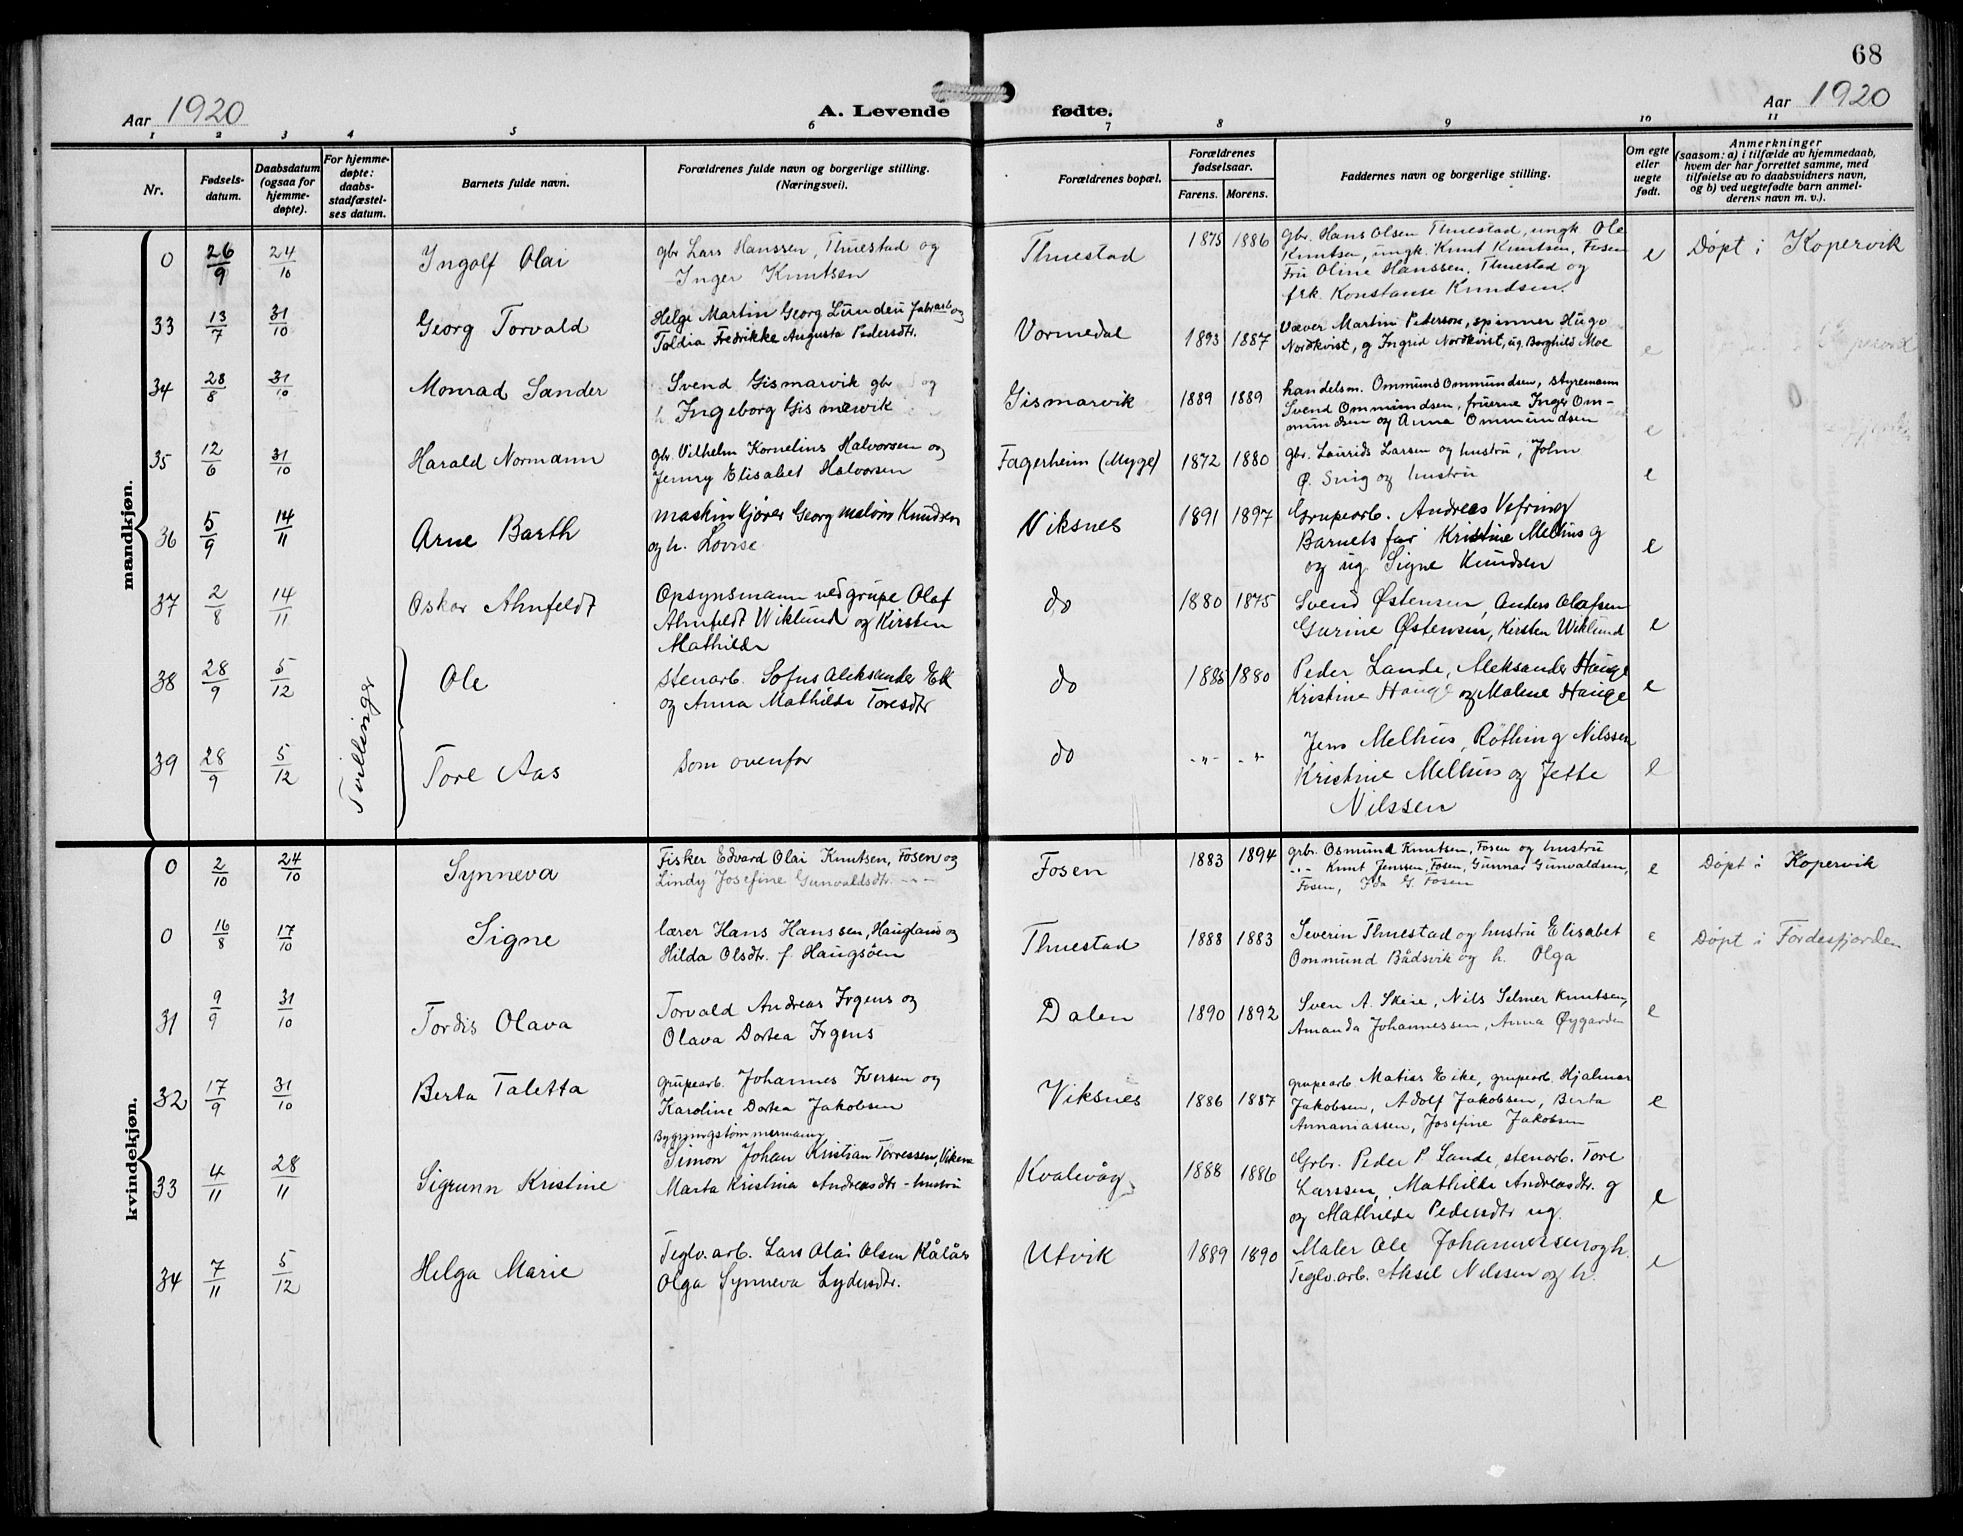 68
Aar 1920
A. Levende fødte.
Aar 1920
1 2 3 4 5 6 7 8 9 10 11
Nr.
Fødsels-
datum.
Daabsdatum
(ogsaa for
hjemme-
døpte).
For hjemme-
døpte:
daabs-
stadfæstel-
ses datum.
Barnets fulde navn.
Forældrenes fulde navn og borgerlige stilling.
(Næringsvei).
Forældrenes bopæl.
Forældrenes
fødselsaar.
Farens. Morens.
Faddernes navn og borgerlige stilling.
Om egte
eller
uegte
født.
Anmerkninger
(saasom: a) i tilfælde av hjemmedaab,
hvem der har forrettet samme, med
tilføielse av to daabsvidners navn,
og b) ved uegtefødte barn anmel-
derens navn m. v.).
mandkjøn.
0 26/9 24/10 Ingolf Olai
gbr Lars Hanssen, Thuestad og
Inger Knutsen
Thuestad 1875 1886
gbr. Hans Olsen Thuestad, ungk Ole
Knutsen, ungk. Knut Knutsen, Fosen
Fru Oline Hanssen, Thuestad og
frk. Konstanse Knudsen.
e Døpt i Kopervik
33 13/7 31/10 Georg Torvald
Helge Martin Georg Lunden fabrarb og
Toldia Fredrikke Augusta Pedersdtr.
Vormedal 1893 1887
Væver Martin Pederson, spinner Hugo
Nordkvist, g Ingrid Nordkvist, ug. Borghild Moe
e
34 28/8 31/10 Monrad Sander
Svend Gismarvik gbr og
h. Ingeborg Gismarvik
Gismarvik 1889 1889
handelsm. Ommund Ommundsen, styremann
Svend Ommundsen, fruerne Inger Om-
mundsen og Anna Ommundsen
e
35 12/6 31/10 Harald Normann
gbr. Vilhelm Kornelius Halvorsen og
Jenny Elisabet Halvorsen
Fagerheim (Myge) 1872 1880
gbr. Laurids Larsen og hustru, John
Ø. og hustru
e
36 5/9 14/11 Arne Barth
maskinkjører Georg Malvin Knudsen
og h. Lovise
Viksnes 1891 1897
Grupearb. Andreas Vefring
Barnets far Kristine Melhus g
og ug. Signe Knudsen
e
37 2/8 14/11 Oskar Ahnfeldt
Opsynsmann ved grupe Olaf
Ahnfeldt Wiklund og Kirsten
Mathilde
do 1880 1875
Svend Østensen, Anders Olafsen
Gurine Østensen, Kirsten Wiklund
e
Tvillinger
38 28/9 5/12 Ole
Stenarb. Sofus Aleksander Ek
og Anna Mathilde Toresdtr
do 1885 1880
Peder Lande, Aleksander Hauge
Kristine Hauge og Malene Hauge
e
39 28/9 5/12 Tore Aas
Som ovenfor
do -"- -"-
Jens Melhus, Røthing Nilssen
Kristine Melhus og Jette
Nilssen
e
kvindekjøn.
0 2/10 24/10 Synneva
Fisker Edvard Olai Knutsen, Fosen og
Lindy Josefine Gunvaldsdtr. -"-
Fosen 1883 1894
gbr. Osmund Knutsen, Fosen og hustru
-"- Knut Jenssen, Fosen, Gunnar Gunvaldsen,
Fosen, Ida G. Fosen
e Døpt i Kopervik
0 16/8 17/10 Signe
lærer Hans Hanssen, Haugland og
Hilda Olsdtr. f. Haugsöen
Thuestad 1888 1883
Severin Thuestad og hustru Elisabet
Ommund Bådsvik og h. Olga
e Døpt i Førdesfjorden
31 9/9 31/10 Tordis Olava
Torvald Andreas Irgens og
Olava Dortea Irgens
Dalen 1890 1892
Sven A. Skeie, Nils Selmer Knutsen,
Amanda Johannessen, Anna Øygarden
e
32 17/9 31/10 Berta Taletta
grupearb. Johannes Iversen og
Karoline Dortea Jakobsen
Viksnes 1886 1887
grupearb Matias Eike, grupearb. Hjalmar
Jakobsen, Adolf Jakobsen, Berta
Annaniassen, Josefine Jakobsen
e
33 4/11 28/11 Sigrunn Kristine
Bygningstømmermann
Simon Johan Kristian Torressen, Vikene
Marta Kristina Andreasdtr - hustru
Kvalevåg 1888 1886
Grbr. Peder P. Lande, stenarb. Tore
Larssen, Mathilde Andreasdtr. g
og Mathilde Pedersdtr ug.
e
34 7/11 5/12 Helga Marie
Teglv.arb. Lars Olai Olsen Kålås
Olga Synneva Lydersdtr.
Utvik 1889 1890
Maler Ole Johannessen og h.
Teglv.arb. Aksel Nilssen og h.
e